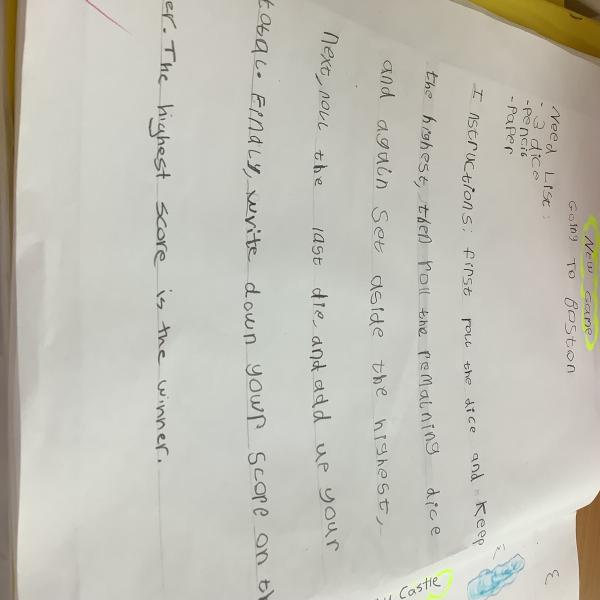 New Game
Going To Boston
Need List:
- 3 dice
- Pencis
- Paper
Instructions: first roll the dice and Keep
the highest, then roll the remaining dice
and again set aside the highest,
Next, roll the last die, and add up your
total. Finaly, write down your score on th
er. The highest score is the winner.
3
Castle